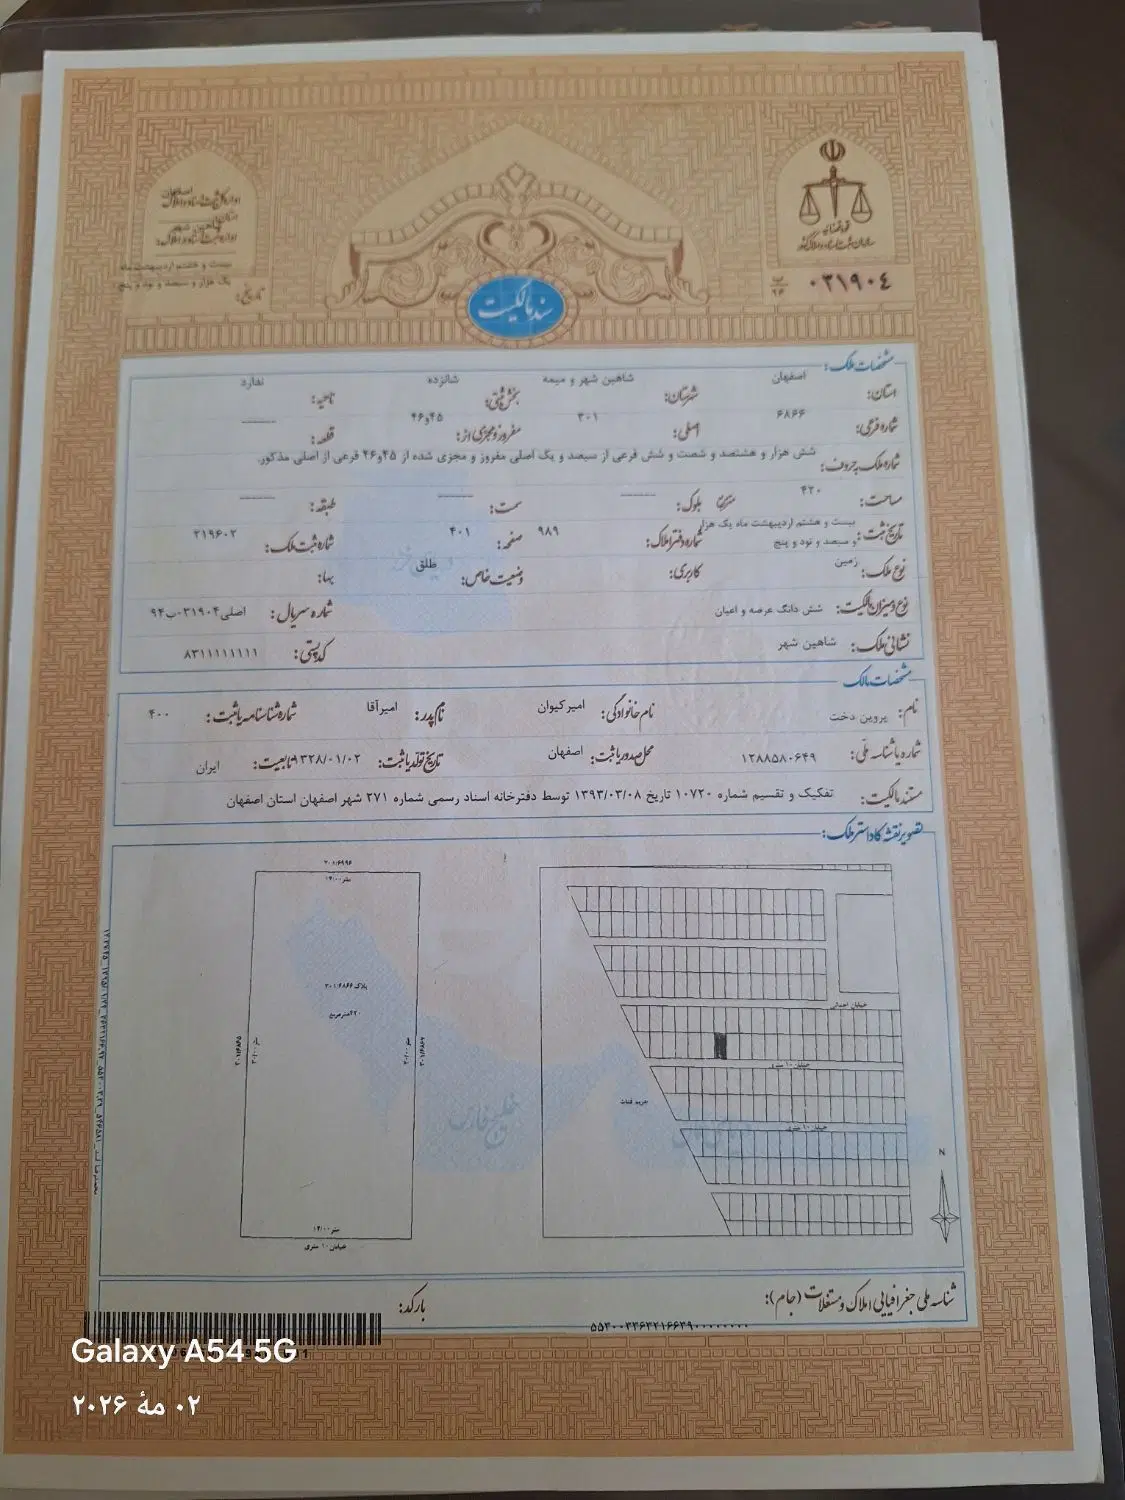 قوه قضائیه
سازمان ثبت اسناد و املاک کشور
۰۳۱۹۰۴
ب
۹۴
اداره کل ثبت اسناد و املاک
استان: اصفهان
اداره ثبت اسناد و املاک: شاهین شهر
تاریخ: بیست و هشتم اردیبهشت ماه
یک هزار و سیصد و نود و پنج
سند مالکیت
مشخصات ملک:
استان: اصفهان شهرستان: شاهین شهر و میمه بخش ثبتی: شانزده ناحیه: ندارد
شماره فرعی: ۶۸۶۶ اصلی: ۳۰۱ مفروز و مجزی از: ۴۵و۴۶ قطعه: ------
شماره ملک به حروف: شش هزار و هشتصد و شصت و شش فرعی از سیصد و یک اصلی مفروز و مجزی شده از ۴۵و۴۶ فرعی از اصلی مذکور.
مساحت: ۴۲۰ مترمربع بلوک: ------ سمت: ------ طبقه: ------
تاریخ ثبت: بیست و هشتم اردیبهشت ماه یک هزار و سیصد و نود و پنج شماره دفتر املاک: ۹۸۹ صفحه: ۴۰۱ شماره ثبت ملک: ۲۱۹۶۰۲
نوع ملک: زمین کاربری: وضعیت خاص: طلق بها:
نوع و میزان مالکیت: شش دانگ عرصه و اعیان شماره سریال: اصلی۰۳۱۹۰۴ب۹۴
نشانی ملک: شاهین شهر کد پستی: ۸۳۱۱۱۱۱۱۱۱
مشخصات مالک
نام: پروین دخت نام خانوادگی: امیرکیوان نام پدر: امیرآقا شماره شناسنامه یا ثبت: ۴۰۰
شماره یا شناسه ملی: ۱۲۸۸۵۸۰۶۴۹ محل صدور یا ثبت: اصفهان تاریخ تولد یا ثبت: ۱۳۲۸/۰۱/۰۲ تابعیت: ایران
مستند مالکیت: تفکیک و تقسیم شماره ۱۰۷۲۰ تاریخ ۱۳۹۳/۰۳/۰۸ توسط دفترخانه اسناد رسمی شماره ۲۷۱ شهر اصفهان استان اصفهان
تصویر نقشه کاداستر ملک:
۱۴/۰۰متر
پلاک ۳۰۱/۶۸۶۶
۴۲۰مترمربع
۳۰۱/۶۸۶۵
۳۰/۰۰متر
۳۰/۰۰متر
۳۰۱/۶۸۶۷
۱۴/۰۰متر
خیابان ۱۰ متری
خیابان احداثی
خیابان ۱۰ متری
حریم قنات
خیابان ۱۰ متری
N
خلیج فارس
شناسه ملی جغرافیایی املاک و مستغلات (جام):
بارکد:
Galaxy A54 5G
۰۲ مهٔ ۲۰۲۶